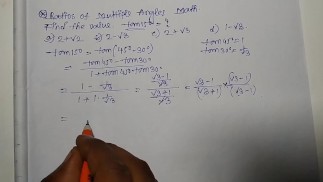 Ratios of Multiple Angles Math
Find the value tan15° = ?
a) 2+√2 b) 2-√3 c) 2+√3 d) 1-√3
tan15° = tan(45°-30°)
tan45° = 1
tan30° = 1/√3
= tan45° - tan30° / 1+tan45°·tan30°
= 1 - 1/√3 / 1+1·1/√3 = √3-1/√3 / √3+1/√3 = √3-1/(√3+1) × (√3-1)/(√3-1)
=